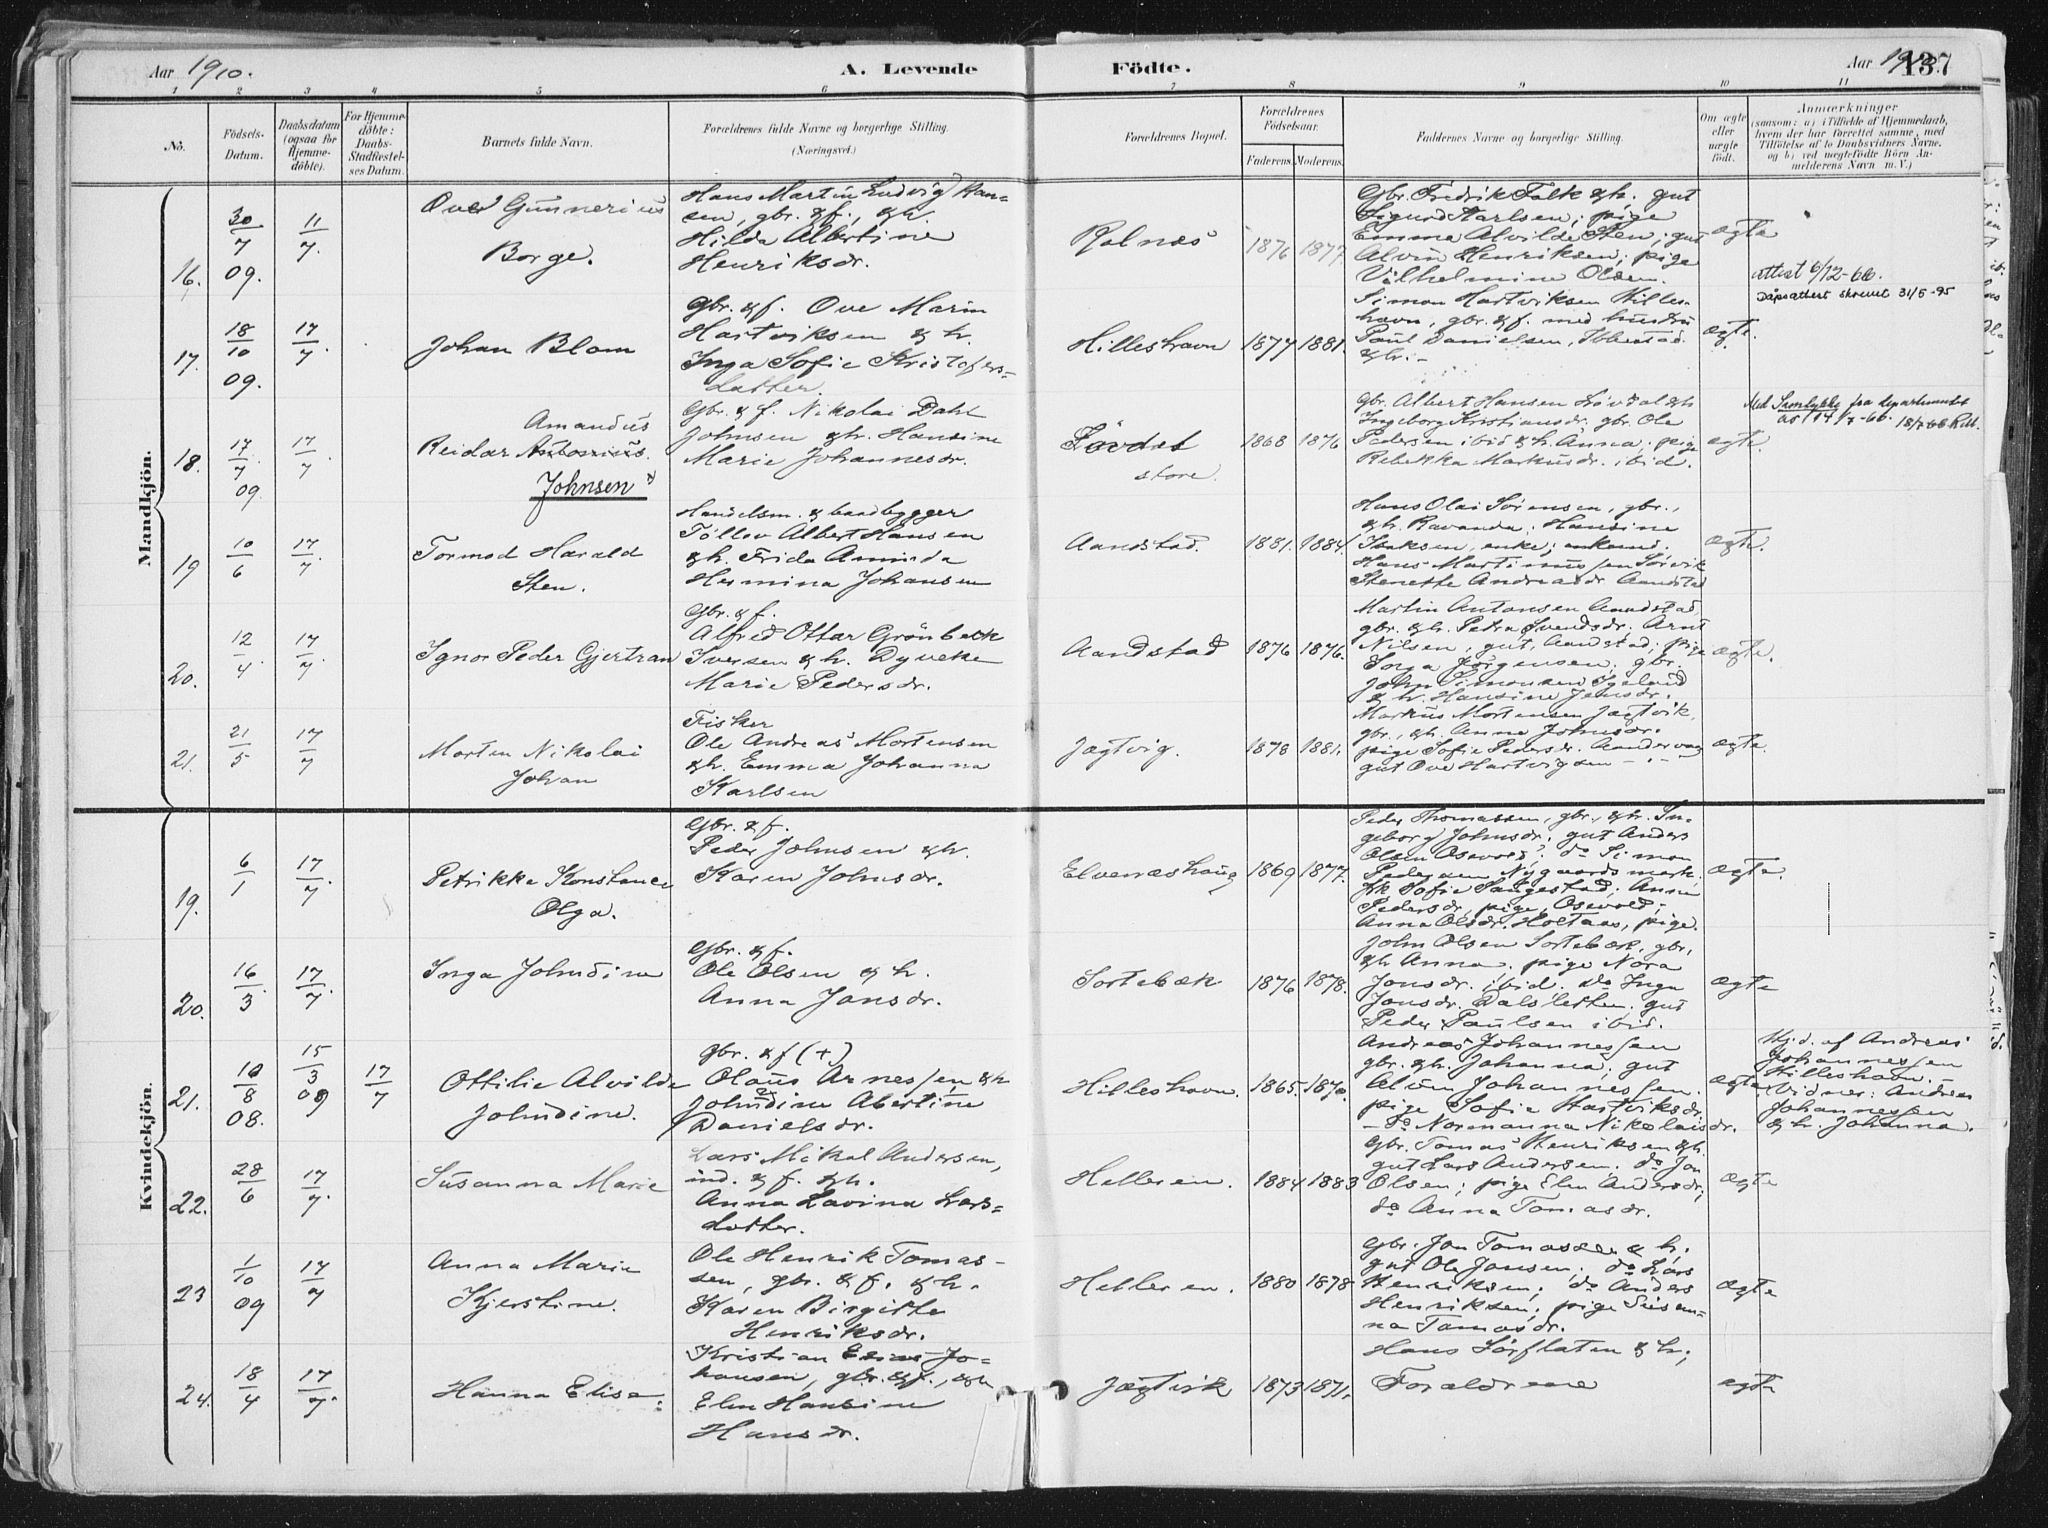 Aar 1910.
A. Levende Födte.
Aar 1910.
137
1 2 3 4 5 6 7 8 9 10 11
No.
Födsels-Datum.
Daabsdatum (ogsaa for Hjemmedöbte).
For Hjemmedöbte: Daabs-Stadfæstelses Datum.
Barnets fulde Navn.
Forældrenes fulde Navne og borgerlige Stilling.
(Næringsvei.)
Forældrenes Bopæl.
Forældrenes Födselsaar.
Faderens. Moderens.
Faddernes Navne og borgerlige Stilling.
Om ægte eller uægte födt.
Anmærkninger
(saasom: a) i Tilfælde af Hjemmedaab, hvem der har forrettet samme, med Tilföielse af to Daabsvidners Navne, og b) ved uegtefödte Börn Anmelderens Navn m. V.)
Mandkjön.
16.
30/7 09.
11/7.
Over Gunnerius
Borge.
Hans Martin Ludvig Han-
sen, gbr. & f., & h.
Hilda Albertine
Henriksdr.
Rolnæs
1876 1877.
Gbr. Fredrik Falk & h. gut
Sigurd Karlsen; pige
Emma Alvilde Sten; gut
Alvin Henriksen; pige
Vilhelmine Olsen.
ægte
attest 6/12-66.
Dåpsattest skrevet 31/5-95
17.
18/10 09.
17/7.
Johan Blom
Gbr. & f. Ove Marin
Hartviksen & h.
Inga Sofie Kristofers-
datter.
Hilleshavn
1877 1881.
Simon Hartviksen Hilles-
havn, gbr. & f. med hustru
Paul Danielsen, Ibbestad
& h. -
ægte.
18.
17/7 09.
17/7
Amandus
Reidar Antonius.
Johnsen
Gbr. & f. Nikolai Dahl
Johnsen & h. Hansine
Marie Johannesdr.
Lövdal
store.
1868 1876
Gbr. Albert Hansen Lövdal & h
Ingeborg Kristiansdr; gbr. Ole
Pedersen ibid & h. Anna; pige
Rebekka Markusdr. ibid.
ægte.
Med Samtykke fra departementet
av 14/7-66. 18/7-66
19
10/6
17/7.
Tormod Harald
Sten.
Handelsm. & baadbygger
Töllev Albert Hansen
& h. Frida Aminda
Hermina Johansen
Aandstad.
1881. 1884.
Hans Olai Sörensen, gbr.,
& h. Ravanda; Hansine
Isaksen, enke;
Hans Martinussen Sörvik
Stenette Andreasdr Aandstad
ægte.
20.
12/4.
17/7.
Ignor Peder Gjertran
Gbr. & f.
Alfred Ottar Grönbeck
Iversen & h. Dyveke
Marie Pedersdr.
Aandstad
1876 1876.
Martin Antonsen Aandstad,
gbr. & h. Petra Svendsdr; Arnt
Nilsen, gut, Aandstad; pige
Inga Jörgensen; gbr.
John Simonsen Igeland
& h. Hansine Jensdr.
ægte.
21.
21/5
17/7
Morten Nikolai
Johan
Fisker
Ole Andreas Mortensen
& h. Emma Johanna
Karlsen
Jægtvig.
1878 1881.
Markus Mortensen Jægtvik,
gbr., & h. Anne Johnsdr.
pige Sofie Pedersdr. Aandervaag
gut Ove Hartvigsen - " -
ægte.
Kvindekjön.
19.
6/1
17/7.
Petrikke Konstance
Olga.
Gbr. & f.
Peder Johnsen & h.
Karen Johnsdr.
Elvenæshaug
1869 1877.
Peder Thomassen, gbr., & h. In-
geborg Johnsdr; gut Anders
Olsen Osevold; do Simon
Pedersen Nygaardsmark.
frk Sofie Sangestad; Anne
Pedersdr, pige, Osevold;
Anna Olsdr. Holtaas, pige.
ægte.
20.
16/3.
17/7.
Inga Johndine
Gbr. & f.
Ole Olsen & h.
Anna Jonsdr.
Sortebæk
1876 1878.
John Olsen Sortebæk, gbr,
& h Anna; pige Nora
Jonsdr. ibid. do Inga
Jonsdr. Dalsletten; gut
Peder Paulsen ibid.
ægte
21.
10/8 08.
15/3 09
17/7
Ottilie Alvilde
Johndine.
Gbr. & f (+)
Olaus Arnessen & h
Johndine Abertine
Danielsdr.
Hilleshavn.
1865. 1870.
Andreas Johannessen
gbr. & h. Johanna; gut
Alvin Johannessen.
pige Sofie Hartviksdr.
- do Normanna Nikolaisdr.
ægte.
Hjd. af Andreas
Johannessen
Hilleshavn.
Vidner: Andreas
Johannessen
& h. Johanna.
22.
28/6
17/7.
Susanna Marie
Lars Mikal Andersen,
ind. & f. & h.
Anna Lovina Lars-
datter.
Helleren.
1884 1883
Gbr. Tomas Henriksen & h.
gut Lars Andersen. do Jon
Olsen; pige Elen Andersdr;
do Anna Tomasdr.
ægte
23
1/10 09
17/7
Anna Marie
Kjerstine.
Ole Henrik Tomas-
sen, gbr. & f. & h.
Karen Birgitte
Henriksdr.
Helleren.
1880 1878
Gbr. Jon Tomassen & h;
gut Ole Jonsen. do Lars
Henriksen; do Anders
Henriksen; pige Susan-
na Tomasdr.
ægte
24.
18/4
17/7.
Hanna Elise
Kristian Elias Jo-
hansen, gbr. & f., & h
Elen Hansine
Hansdr.
Jægtvik
1873 1871.
Hans Sörflaten & h;
Forældrene
ægte